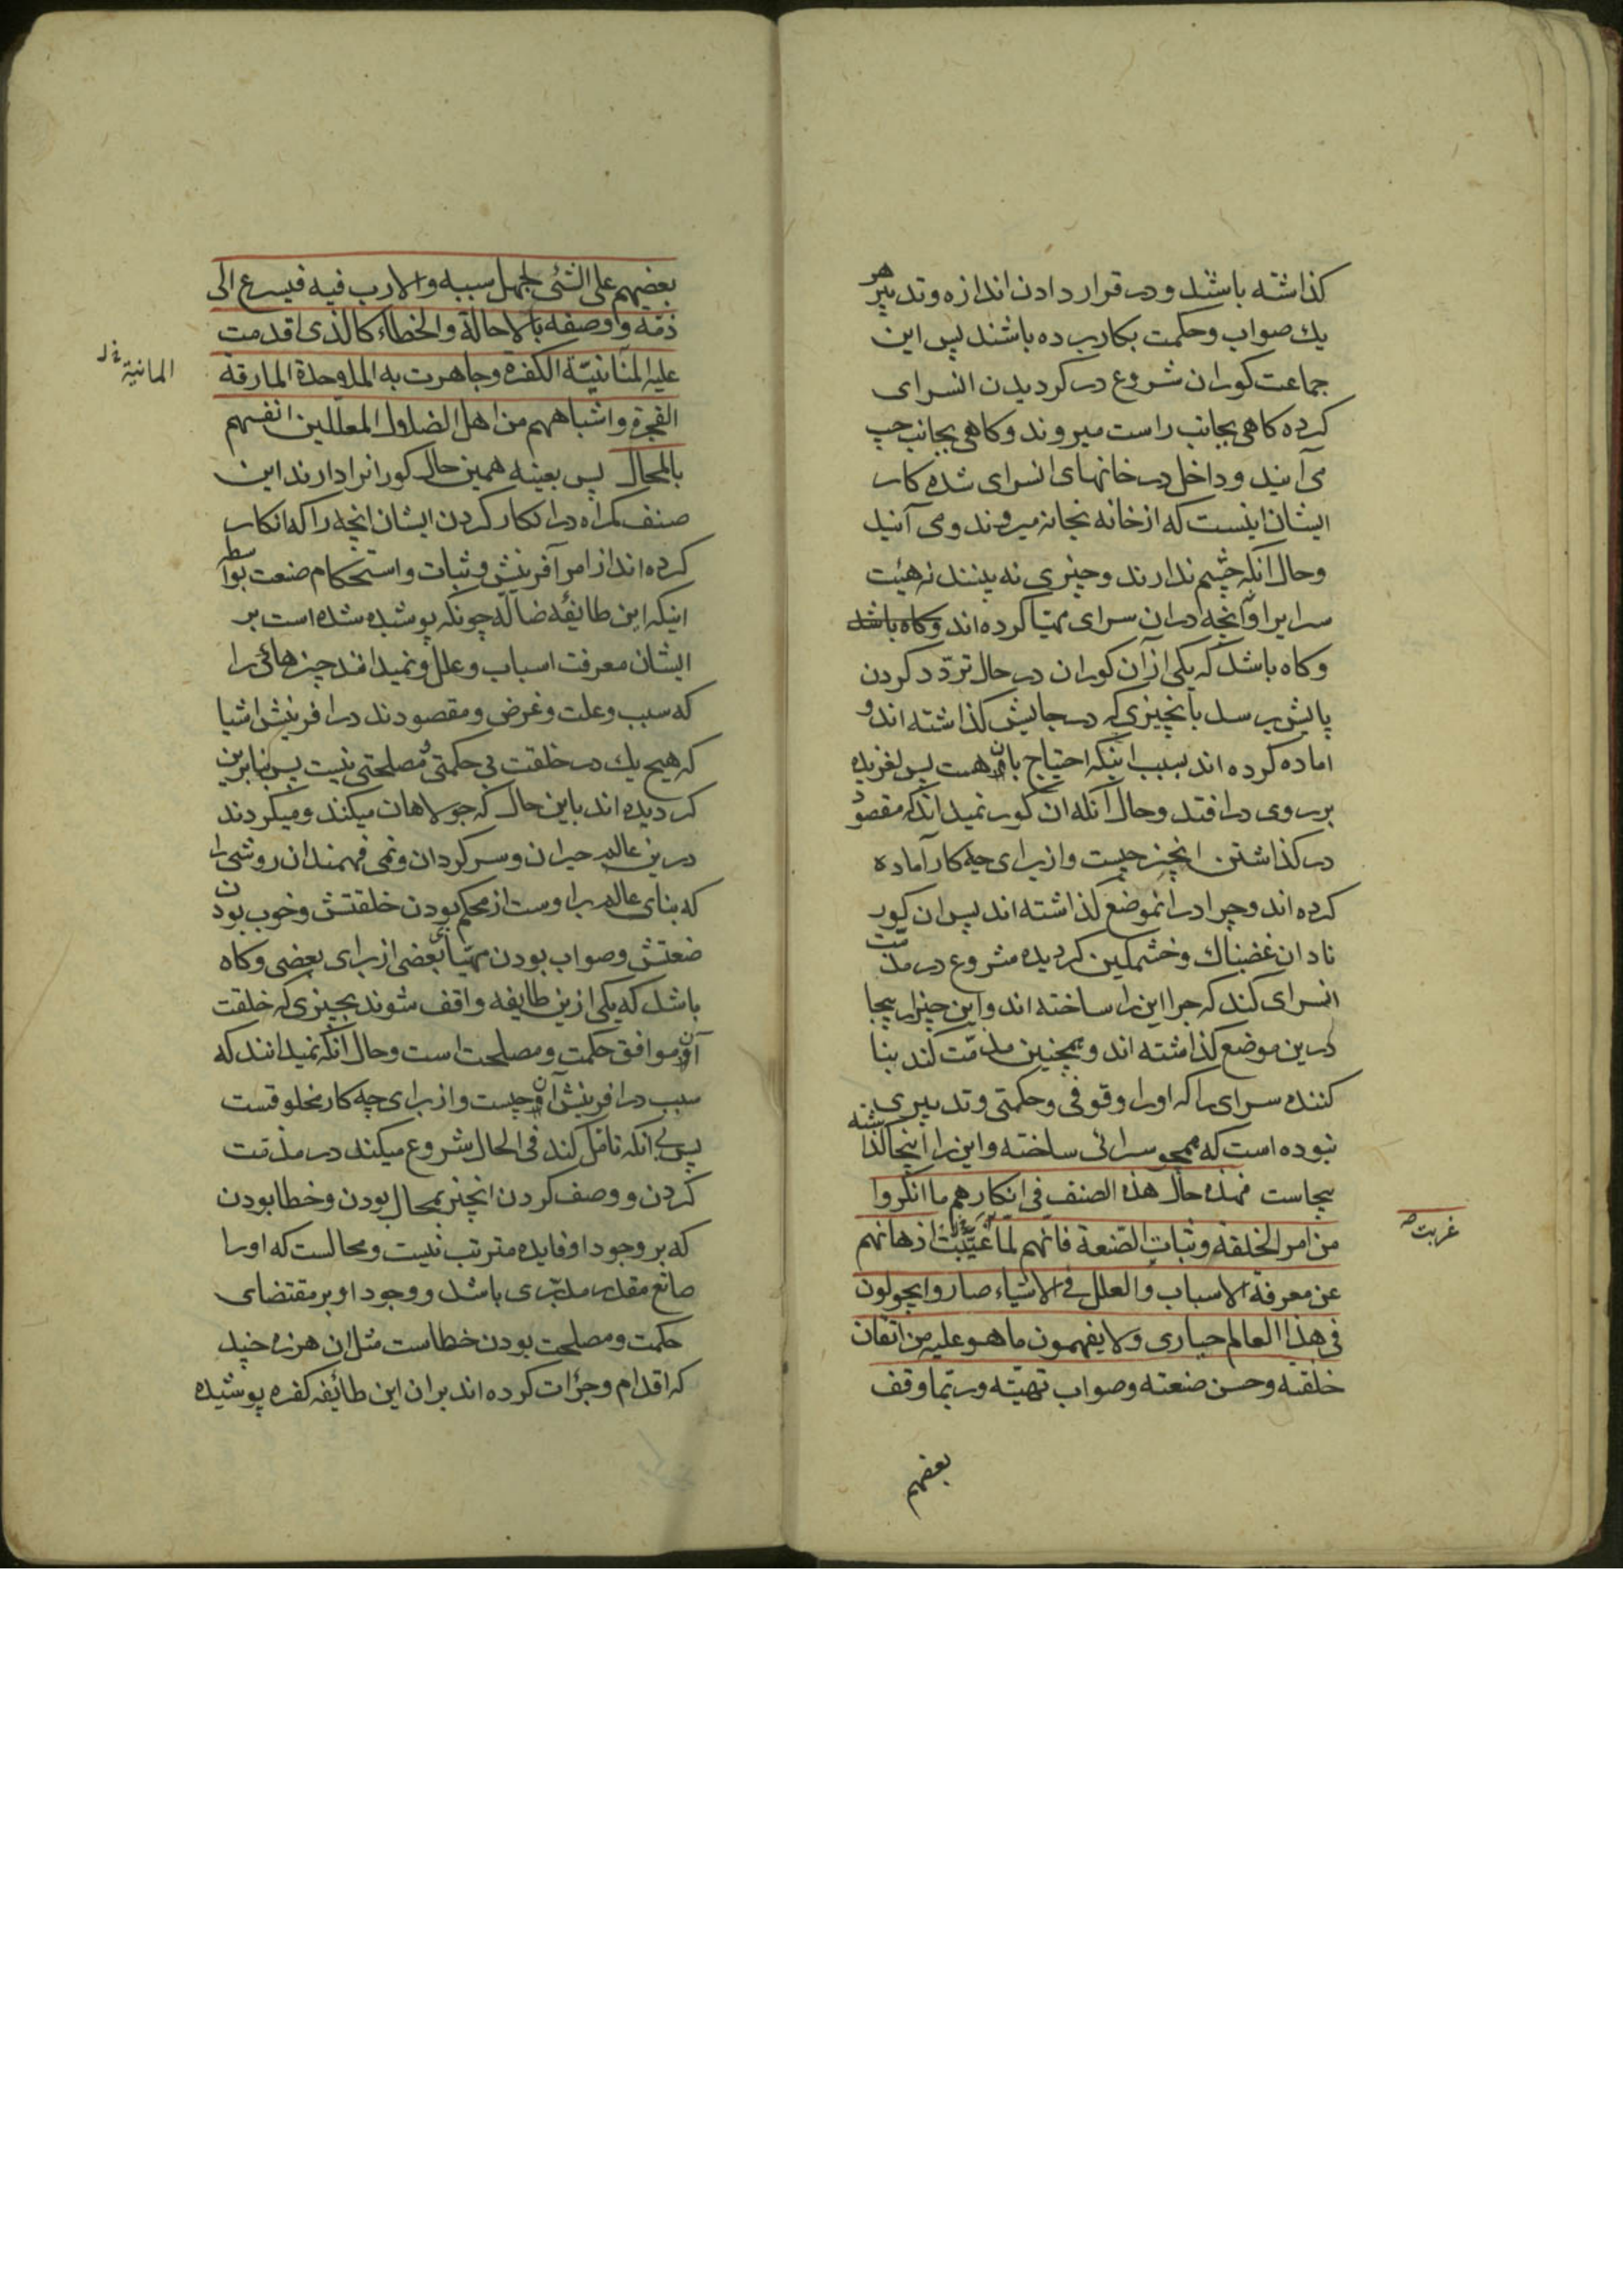 كذاشته باشند و در قرار دادن اندازه و تدبیر هر
یك صواب و حكمت بكار برده باشند پس این
جماعت كوران شروع در كردیدن انسرای
كرده كاهی بجانب راست میروند و كاهی بجانب چپ
می آیند و داخل در خانهای انسرای شده كار
ایشان اینست كه از خانه بخانه میروند و می آیند
و حال آنكه چشم ندارند و چیزی نه بینند نه هیئت
سرایرا و آنچه در ان سرای مهیا كرده اند وكاه باشد
وكاه باشد كه یكی از آن كوران در حال تردّد كردن
پایش برسد بانچیزی كه در جایش كذاشته اند و
اماده كرده اند بسبب اینكه احتیاج بان هست پس لغزیده
بر روی در افتد و حال آنكه ان كور نمیداند كه مقصود
در كذاشتن انچیز چیست و از برای چه كار آماده
كرده اند و چرا در انموضع كذاشته اند پس ان كور
نادان غضبناك و خشمكین كردیده شروع در مذمّت
انسرای كند كه چرا این را ساخته اند و این چیز را بیجا
درین موضع كذاشته اند و همچنین مذمّت كند بنا
كننده سرای را كه اورا وقوفی و حكمتی و تدبیری
نبوده است كه همچو سرائی ساخته و این را اینجا كذاشته
بیجاست فهذه حال هذه الصنف فی انكارهم ما انكروا
من امر الخلقة و ثبات الصّنعة فانّهم لمّا غیّبت اذهانهم
غربت
عن معرفة الاسباب و العلل فی الاشیاء صاروا یجولون
فی هذا العالم حیاری و لا یفهمون ما هو علیه من اتقان
خلقته و حسن صنعته و صواب تهیّته و ربّما وقف
بعضهم
بعضهم علی الشّئ لجهل سببه و الارب فیه فیسرع الی
ذمّه و اوصفه بالاحالة و الخطاء كالذی اقدمت
علیه المنّانیّة الكفرة و جاهرت به الملاحدة المارقة
المانیة خ ل
الفجرة و اشباههم من اهل الضلال المعلّلین انفسهم
بالمحال پس بعینه همین حال كورانرا دارند این
صنف كمراه در انكار كردن ایشان انچه را كه انكار
كرده اند از امر آفرینش و ثبات و استحكام صنعت بواسطه
اینكه این طایفهٔ ضالّه چونكه پوشیده شده است بر
ایشان معرفت اسباب و علل و نمیدانند چیزهائی را
كه سبب و علت و غرض و مقصودند در افرینش اشیا
كه هیچ یك در خلقت بی حكمتی و مصلحتی نیست پس بنابرین
كردیده اند باین حال كه جولاهان میكند و میكردند
درین عالم حیران و سركردان و نمی فهمند ان روشی را
كه بنای عالم بر اوست از محكم بودن خلقتش و خوب بودن
ضعتش و صواب بودن مهیّائ بعضی از برای بعضی و كاه
باشد كه یكی ازین طایفه واقف شوند بچیزی كه خلقت
آن موافق حكمت و مصلحت است و حال آنكه نمیدانند كه
سبب در افرینش آن چیست و از برای چه كار مخلوقست
پس بی آنكه تامّل كند فی الحال شروع میكند در مذمّت
كردن و وصف كردن انچیز بمحال بودن و خطا بودن
كه بر وجود او فایده مترتب نیست و محالست كه اورا
صانع مقدر مدبّری باشد و وجود او بر مقتضای
حكمت و مصلحت بودن خطاست مثل ان هرزه چیند
كه اقدام و جرٔات كرده اند بر ان این طائفه كفره پوشیده